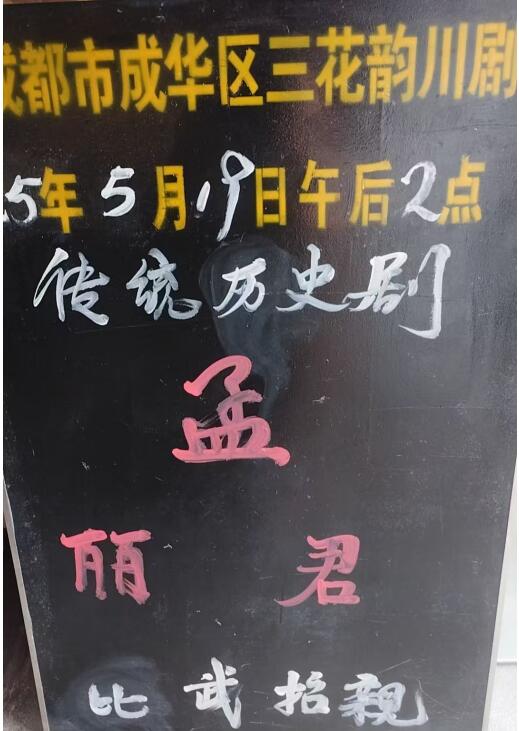 成都市成华区三花韵川剧
5年5月19日午后2点
传统历史剧
孟
丽君
比武招亲